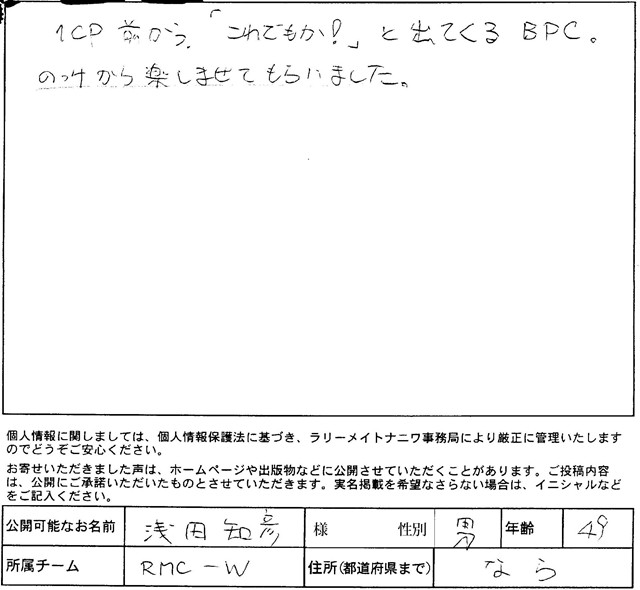 1CP 前から、「これでもか!」と出てくるBPC。
のっけから楽しませてもらいました。
個人情報に関しましては、個人情報保護法に基づき、ラリーメイトナニワ事務局により厳正に管理いたします
のでどうぞご安心ください。
お寄せいただきました声は、ホームページや出版物などに公開させていただくことがあります。ご投稿内容
は、公開にご承諾いただいたものとさせていただきます。実名掲載を希望なさらない場合は、イニシャルなど
をご記入ください。
公開可能なお名前 浅田知彦 様 性別 男 年齢 49
所属チーム RMC-W 住所(都道府県まで) なら